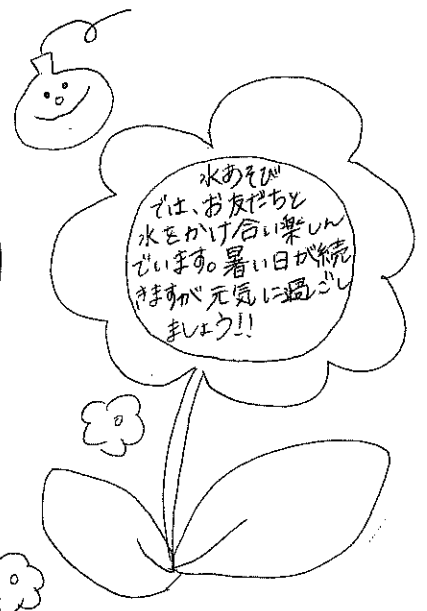 水あそび
では、お友だちと
水をかけ合い楽しん
でいます。暑い日が続
きますが元気に過ごし
ましょう!!